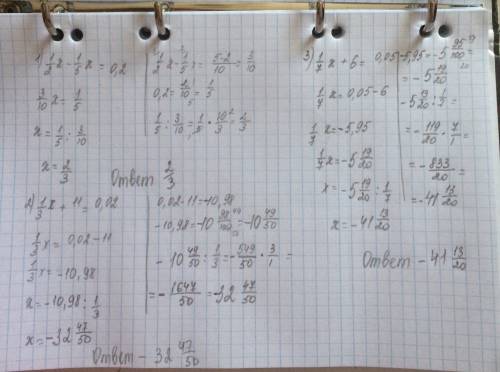 1) 1/2 x - 1/5 x = 0,2
3/10 x = 1/5
x = 1/5 : 3/10
x = 2/3
1/2 x - 1/5 x = (5-2)/10 = 3/10
0,2 = 2/10 = 1/5
1/5 : 3/10 = 1/5 · 10/3 = 2/3
Ответ 2/3
2) 1/3 x + 11 = 0,02
1/3 x = 0,02 - 11
1/3 x = -10,98
x = -10,98 : 1/3
x = -32 47/50
0,02 - 11 = -10,98
-10,98 = -10 98/100 = -10 49/50
-10 49/50 : 1/3 = -549/50 · 3/1 =
= -1647/50 = -32 47/50
Ответ - 32 47/50
3) 1/7 x + 6 = 0,05
1/7 x = 0,05 - 6
1/7 x = -5,95
1/7 x = -5 19/20
x = -5 19/20 : 1/7
x = -41 13/20
-5,95 = -5 95/100 =
= -5 19/20
-5 19/20 : 1/7 =
= -119/20 · 7/1 =
= -833/20 =
= -41 13/20
Ответ - 41 13/20